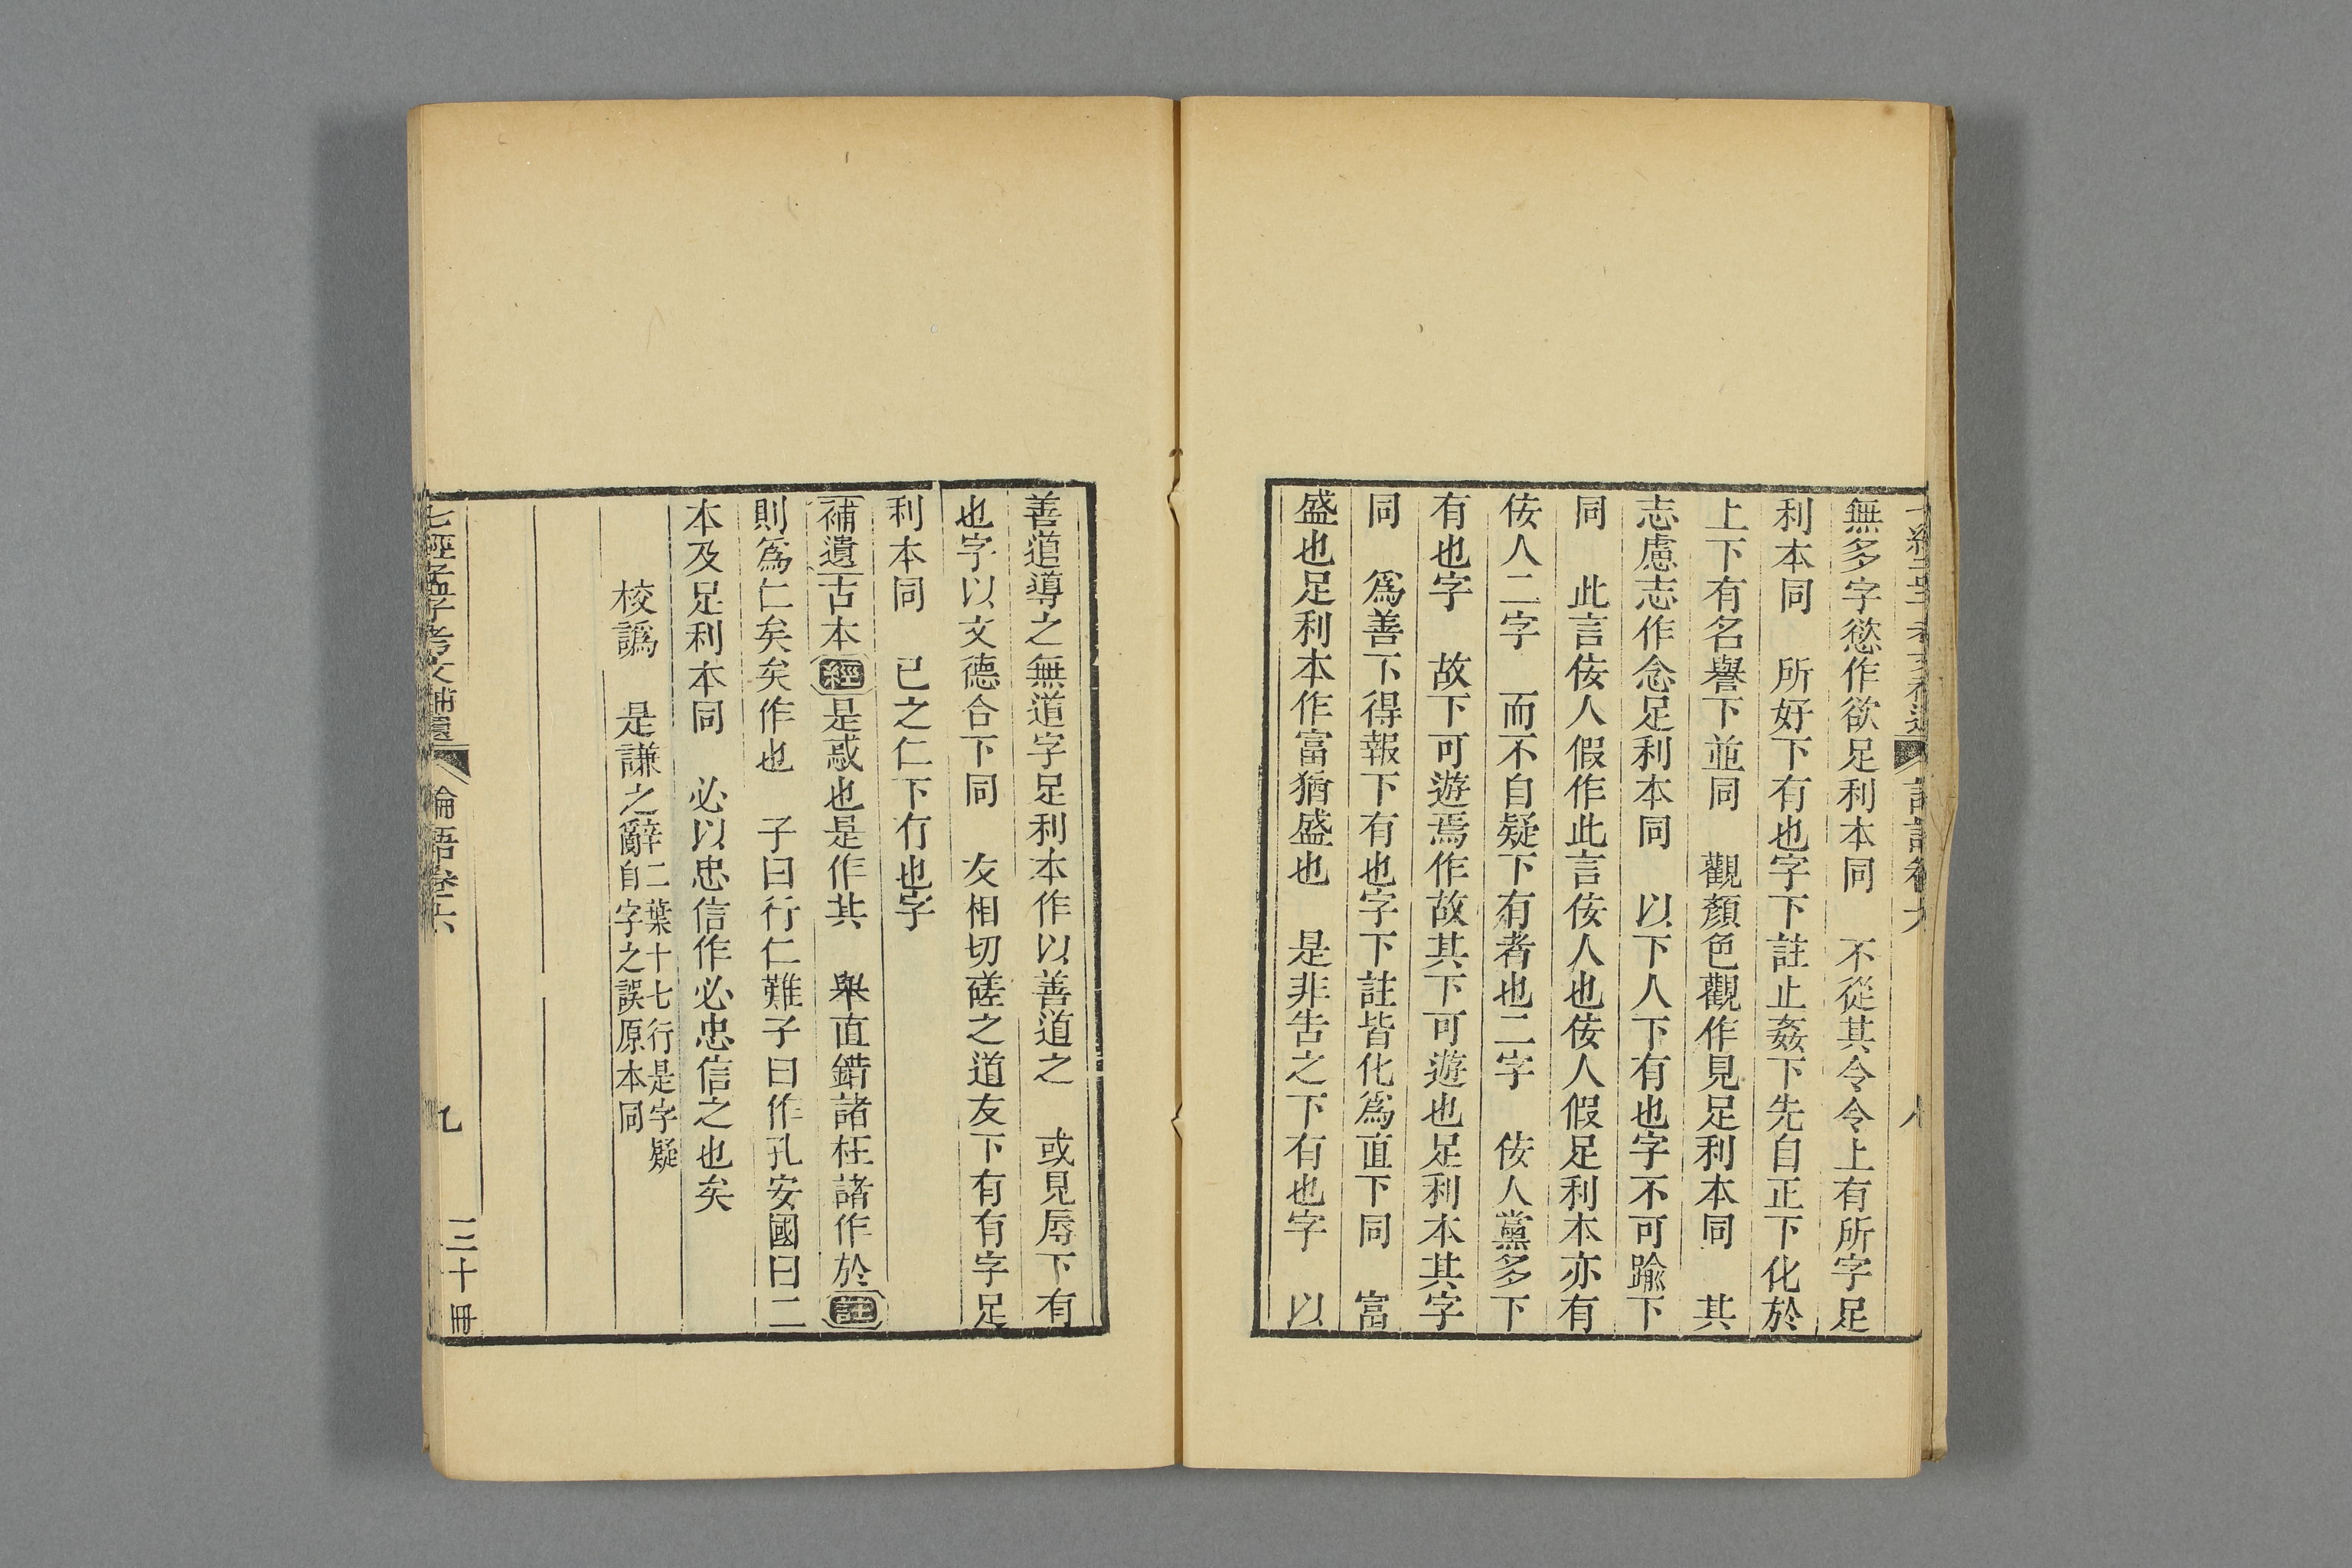 無多字慾作欲足利本同　不從其令令上有所字足
利本同　所好下有也字下註止姦下先自正下化於
上下有名譽下並同　觀顏色觀作見足利本同　其
志慮志作念足利本同　以下人下有也字不可踰下
同　此言佞人假作此言佞人也佞人假足利本亦有
佞人二字　而不自疑下有者也二字　佞人黨多下
有也字　故下可遊焉作故其下可遊也足利本其字
同　爲善下得報下有也字下註皆化爲直下同　富
盛也足利本作富猶盛也　是非告之下有也字　以
善道導之無道字足利本作以善道之　或見辱下有
也字以文德合下同　友相切磋之道友下有有字足
利本同　己之仁下行也字
補遺古本經是惑也是作其　舉直錯諸枉諸作於註
則爲仁矣矣作也　子曰行仁難子曰作孔安國曰二
本及足利本同　必以忠信作必忠信之也矣
校譌　是謙之辭二葉十七行是字疑
自字之誤原本同
七經孟子考文補遺　論語卷六　九　三十冊